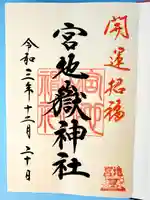 開運招福
宮地嶽神社
令和三年十二月三十日